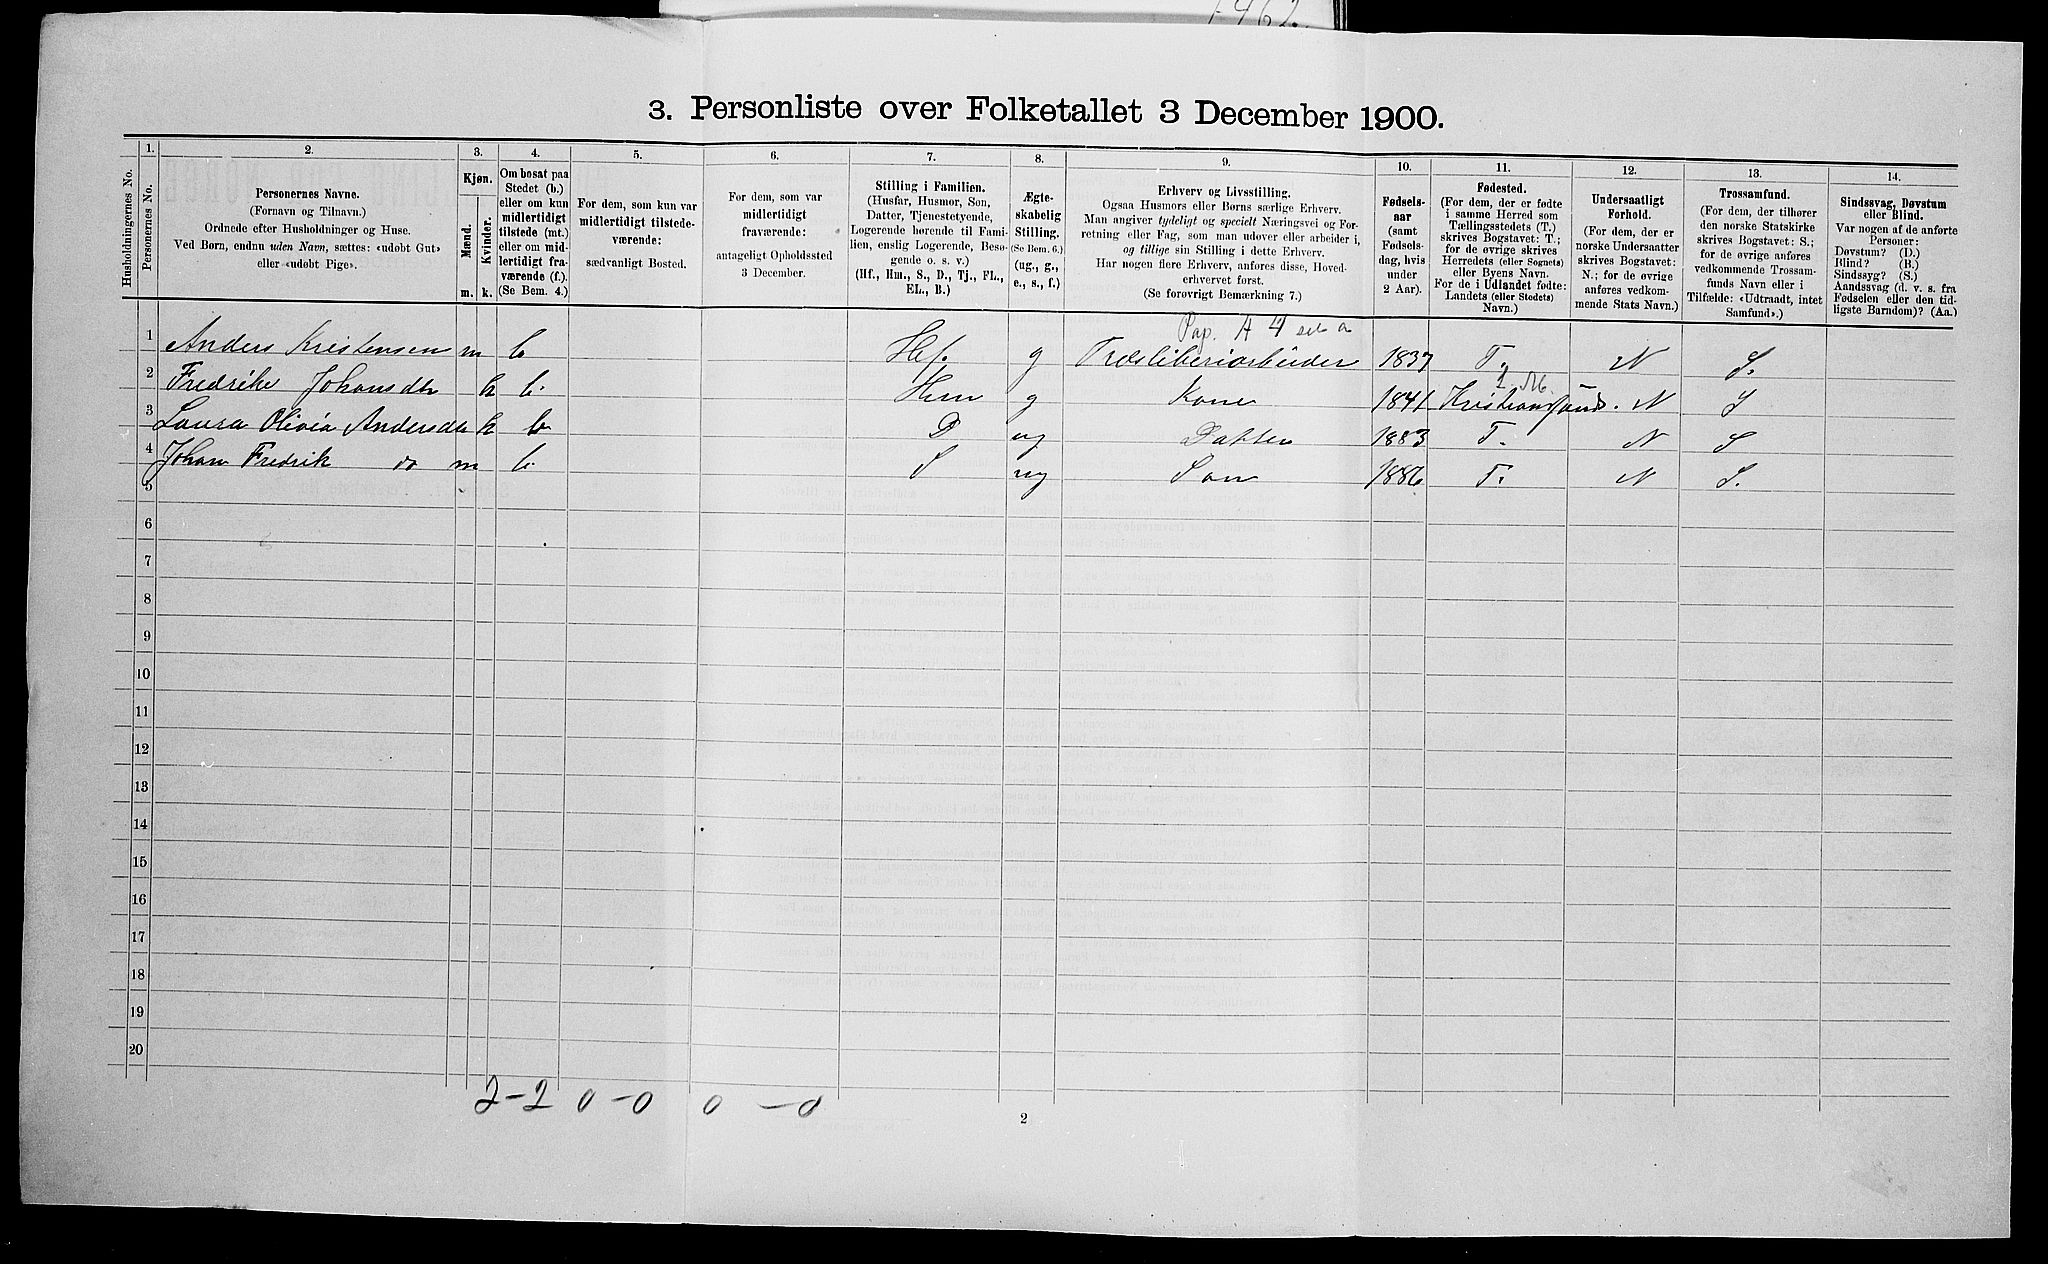 3. Personliste over Folketallet 3 December 1900.
Husholdningernes No.
1. Personernes No.
2. Personernes Navne.
(Fornavn og Tilnavn.)
Ordnede efter Husholdninger og Huse.
Ved Børn, endnu uden Navn, sættes: «udøbt Gut»
eller «udøbt Pige».
3. Kjøn.
Mænd. m.
Kvinder. k.
4. Om bosat paa
Stedet (b.)
eller om kun
midlertidigt
tilstede (mt.)
eller om mid-
lertidigt fra-
værende (f.).
(Se Bem. 4.)
5. For dem, som kun var
midlertidigt tilstede-
værende:
sædvanligt Bosted.
6. For dem, som var
midlertidigt
fraværende:
antageligt Opholdssted
3 December.
7. Stilling i Familien.
(Husfar, Husmor, Søn,
Datter, Tjenestetyende,
Logerende hørende til Fami-
lien, enslig Logerende, Besø-
gende o. s. v.)
(Hf., Hm., S., D., Tj., FL.,
EL., B.)
8. Ægte-
skabelig
Stilling.
(Se Bem. 6.)
(ug., g.,
e., s., f.)
9. Erhverv og Livsstilling.
Ogsaa Husmors eller Børns særlige Erhverv.
Man angiver tydeligt og specielt Næringsvei og For-
retning eller Fag, som man udøver eller arbeider i,
og tillige sin Stilling i dette Erhverv.
Har nogen flere Erhverv, anføres disse, Hoved-
erhvervet først.
(Se forøvrigt Bemærkning 7.)
10. Fødsels-
aar
(samt
Fødsels-
dag, hvis
under
2 Aar).
11. Fødested.
(For dem, der er fødte
i samme Herred som
Tællingsstedets (T.)
skrives Bogstavet: T.;
for de øvrige skrives
Herredets (eller Sognets)
eller Byens Navn.
For de i Udlandet fødte:
Landets (eller Stedets)
Navn.)
12. Undersaatligt
Forhold.
(For dem, der er
norske Undersaatter
skrives Bogstavet:
N.; for de øvrige
anføres vedkom-
mende Stats Navn.)
13. Trossamfund.
(For dem, der tilhører
den norske Statskirke
skrives Bogstavet: S.;
for de øvrige anføres
vedkommende Trossam-
funds Navn eller i
Tilfælde: «Udtraadt, intet
Samfund».)
14. Sindssvag, Døvstum
eller Blind.
Var nogen af de anførte
Personer:
Døvstum? (D.)
Blind? (B.)
Sindssyg? (S.)
Aandssvag (d. v. s. fra
Fødselen eller den tid-
ligste Barndom)? (Aa.)
Pap. A 4
1 Anders Kristensen m b Hf. g 1837 T. N S.
2 Fredrike Johansda k b. Hm g Kone 1841 Kristianssand. N S
3 Laura Olivia Andersda k b D ug Datter 1883 T. N S
4 Johan Fredrik do m b. S ug Søn 1886 T. N S.
5
6
7
8
9
10
11
12
13
14
15
16
17
18
19
20
2-2 0-0 0-0
2